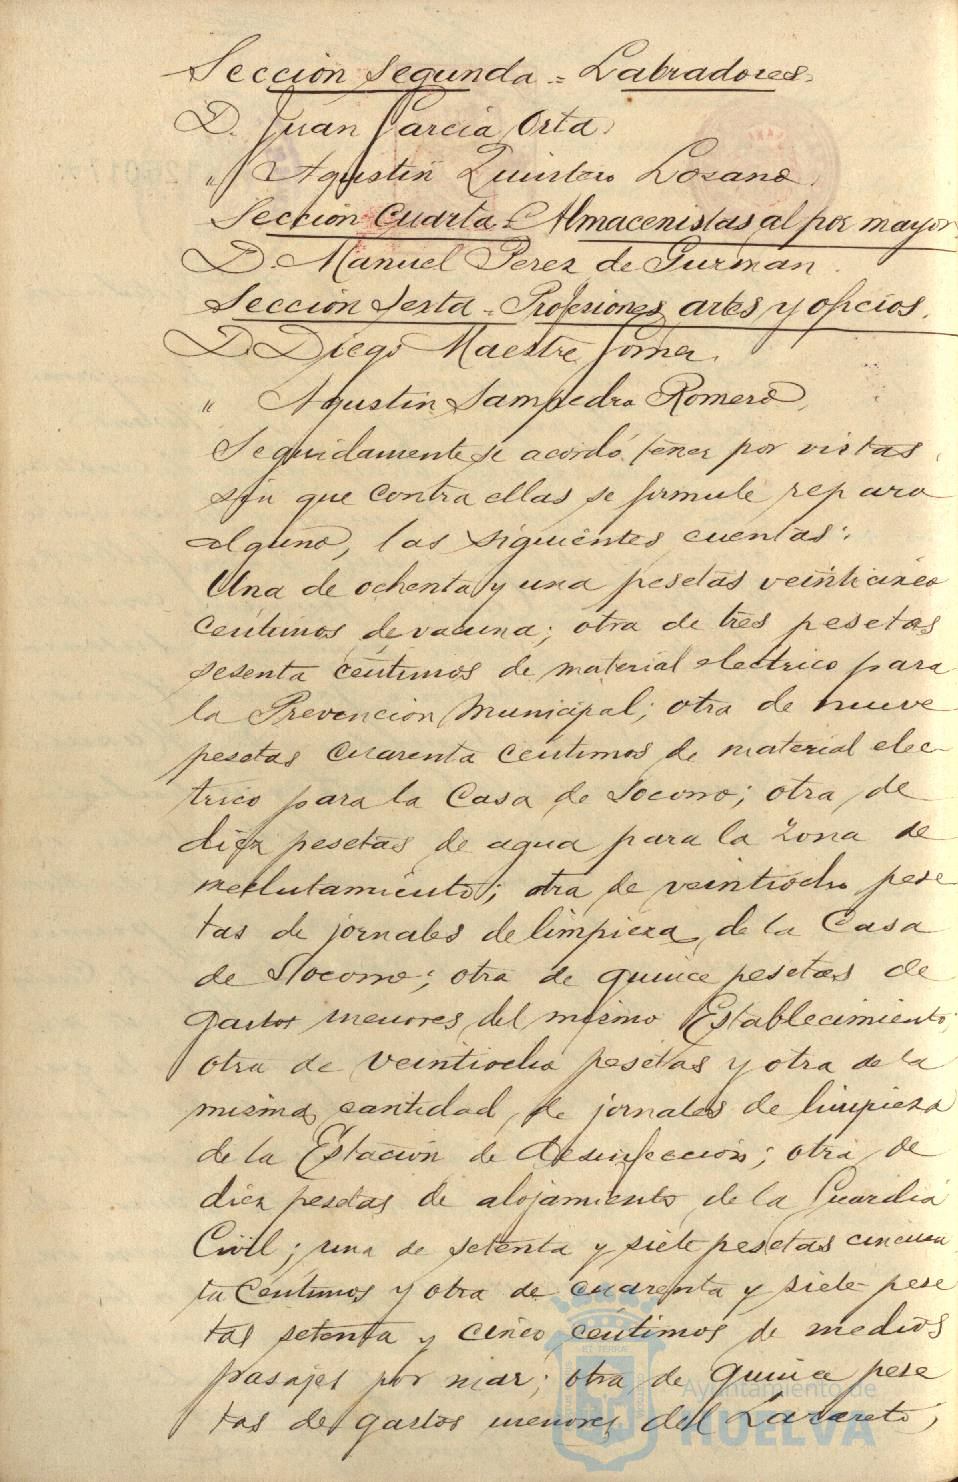 Sección Segunda = Labradores.
D. Juan García Orta
" Agustin Quintero Lozano
Sección Cuarta = Almacenistas al por mayor
D. Manuel Perez de Guzman.
Sección Sexta - Profesiones, artes y oficios.
D. Diego Maestre Gomez.
" Agustin Sampedro Romero,
Seguidamente se acordó tener por vistas,
sin que contra ellas se formule reparo
alguno, las siguientes cuentas:
Una de ochenta y una pesetas veinticinco
centimos de vacuna; otra de tres pesetas
sesenta centimos de material electrico para
la Prevencion Municipal; otra de nueve
pesetas cuarenta centimos de material elec-
trico para la Casa de Socorro; otra de
diez pesetas de agua para la Zona de
reclutamiento; otra de veintiocho pese
tas de jornales de limpieza de la Casa
de Socorro; otra de quince pesetas de
gastos menores del mismo Establecimiento;
otra de veintiocho pesetas y otra de la
misma cantidad de jornales de limpieza
de la Estación de desinfección; otra de
diez pesetas de alojamiento de la Guardia
Civil; una de setenta y siete pesetas cincuen
ta centimos y otra de cuarenta y siete pese
tas setenta y cinco céntimos de medios
pasajes por mar; otra de quince pese
tas de gastos menores del Lazareto;
ET TERRA
Ayuntamiento de
HUELVA